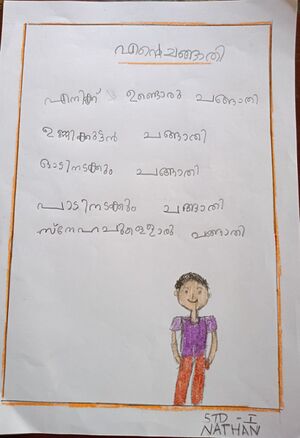 എന്റെ ചങ്ങാതി
എനിക്ക് ഉണ്ടൊരു ചങ്ങാതി
ഉണ്ണിക്കുട്ടൻ ചങ്ങാതി
ഓടിനടക്കും ചങ്ങാതി
പാടിനടക്കും ചങ്ങാതി
സ്നേഹമുള്ളൊരു ചങ്ങാതി
STD - I
NATHAN